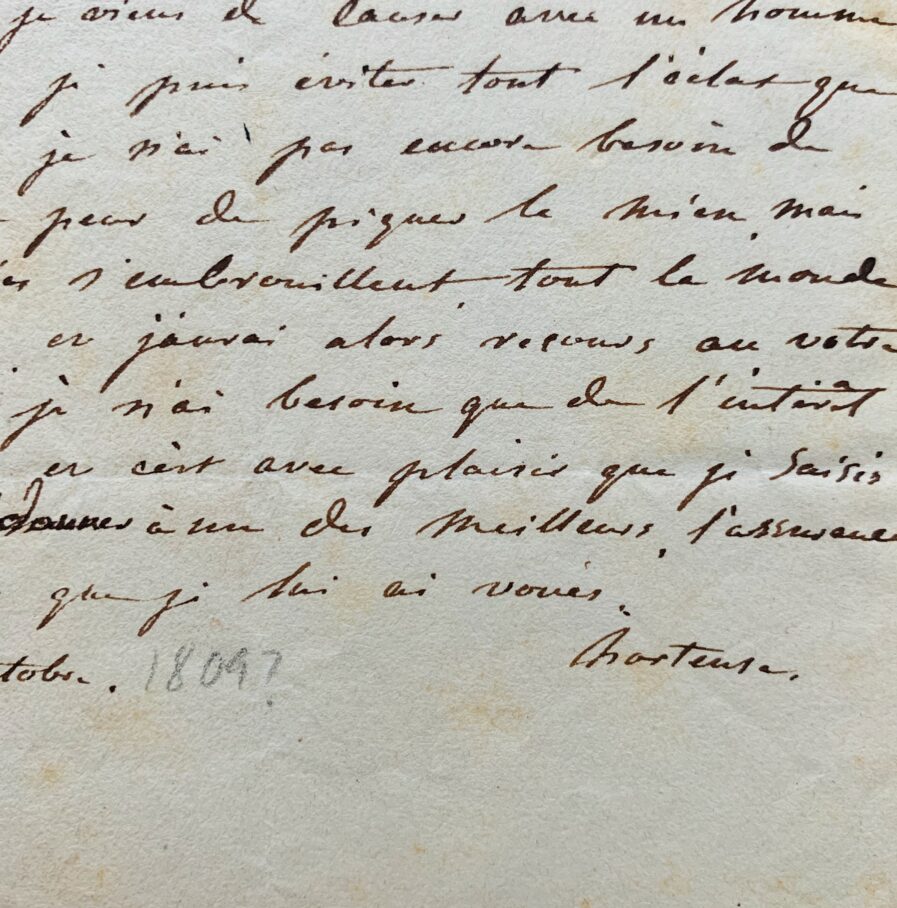 je viens de causer avec un homme
je puis éviter tout l'éclat que
je n'ai pas encore besoin de
peur de piquer le mien, mais
s'embrouillent, tout le monde
et j'aurai alors recours au votre
je n'ai besoin que de l'intérêt
et c'est avec plaisir que je saisis
donner à un des meilleurs, l'assurance
que je lui ai voués.
hortense.
tobre. 1809?